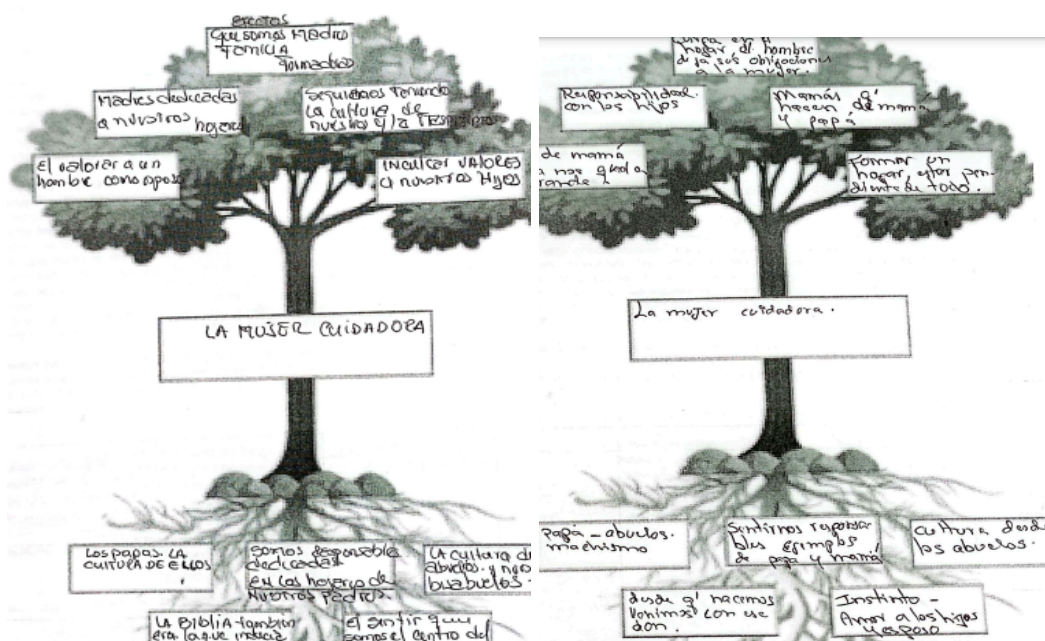 Efectos
Que somos Madres
FOMILIA
Formadora
Madres dedicadas
a nuestros hogares
Seguiemos Teniendo
La cultura de
nuestros y la
El valorar a un
hombre como esposo
INCULCAR VALORES
a nuestros Hijos
LA MUJER CUIDADORA
Los papas. LA
CULTURA DE ELLOS
Somos Responsables
dedicadas
en los hogares de
nuestros padres.
LA cultura de
abuelos. y
bisabuelos.
LA BIBLIA tambien
era la que
el sentir que
somos el centro del
en el
hogar el hombre
deja sus obligaciones
a la mujer.
Responsabilidad
con los hijos
Mamás q'
hacen de mamá
y papá
de mamá
Formar un
hogar, estar pen-
diente de todo.
La mujer cuidadora.
Papá - abuelos.
machismo
Sentirnos responsa
bles ejemplos
de papá y mamá
Cultura desde
los abuelos.
desde q' nacemos
venimos con ese
don.
Instinto -
Amor a los hijos
y esposo